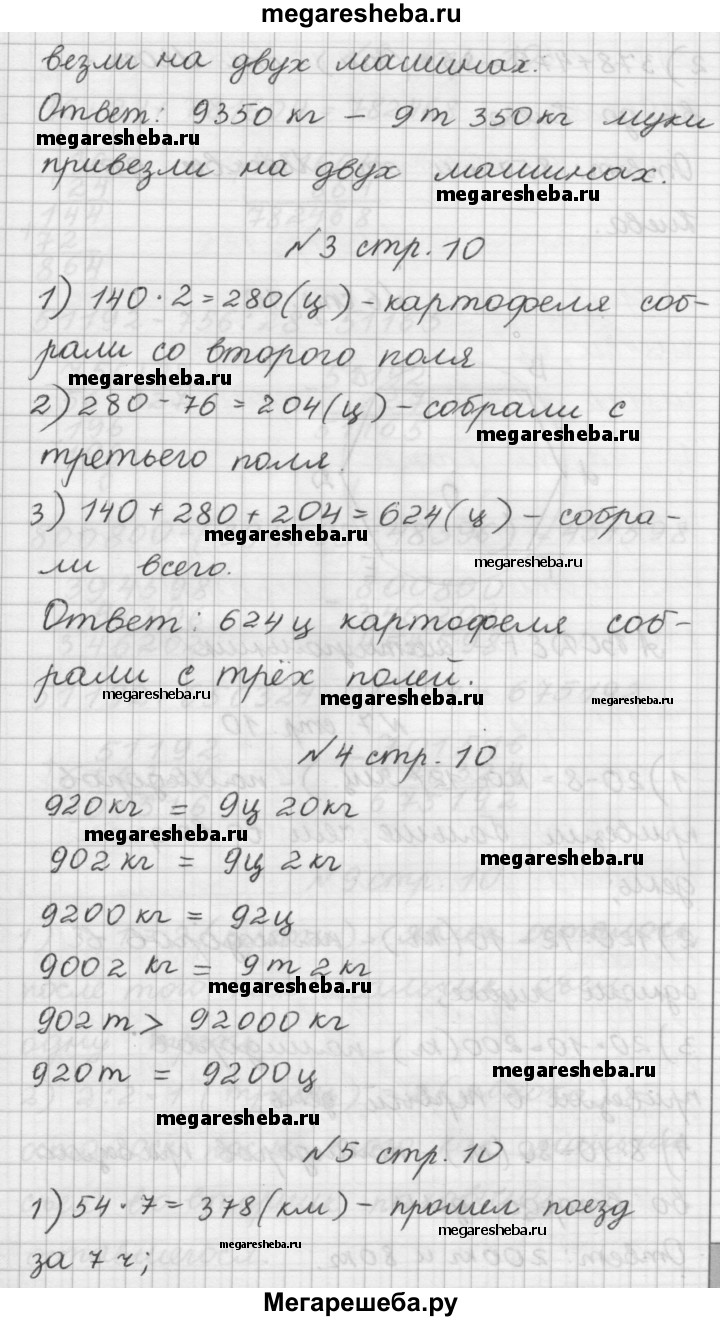 megaresheba.ru
везли на двух машинах.
Ответ: 9350 кг – 9т 350кг муки
megaresheba.ru
привезли на двух машинах.
megaresheba.ru
№3 стр. 10
1) 140 · 2 = 280 (ц) – картофеля соб-
рали со второго поля
megaresheba.ru
2) 280 – 76 = 204 (ц) – собрали с
megaresheba.ru
третьего поля.
3) 140 + 280 + 204 = 624 (ц) – собра-
megaresheba.ru
megaresheba.ru
ли всего.
Ответ: 624 ц картофеля соб-
рали с трёх полей.
megaresheba.ru
megaresheba.ru
megaresheba.ru
№4 стр. 10
920 кг = 9ц 20кг
megaresheba.ru
902 кг = 9ц 2кг
megaresheba.ru
9200 кг = 92ц
9002 кг = 9т 2кг
megaresheba.ru
902 т > 92000 кг
920т = 9200ц
megaresheba.ru
megaresheba.ru
№5 стр. 10
1) 54 · 7 = 378 (км) – прошел поезд
megaresheba.ru
megaresheba.ru
за 7 ч;
Мегарешеба.ру